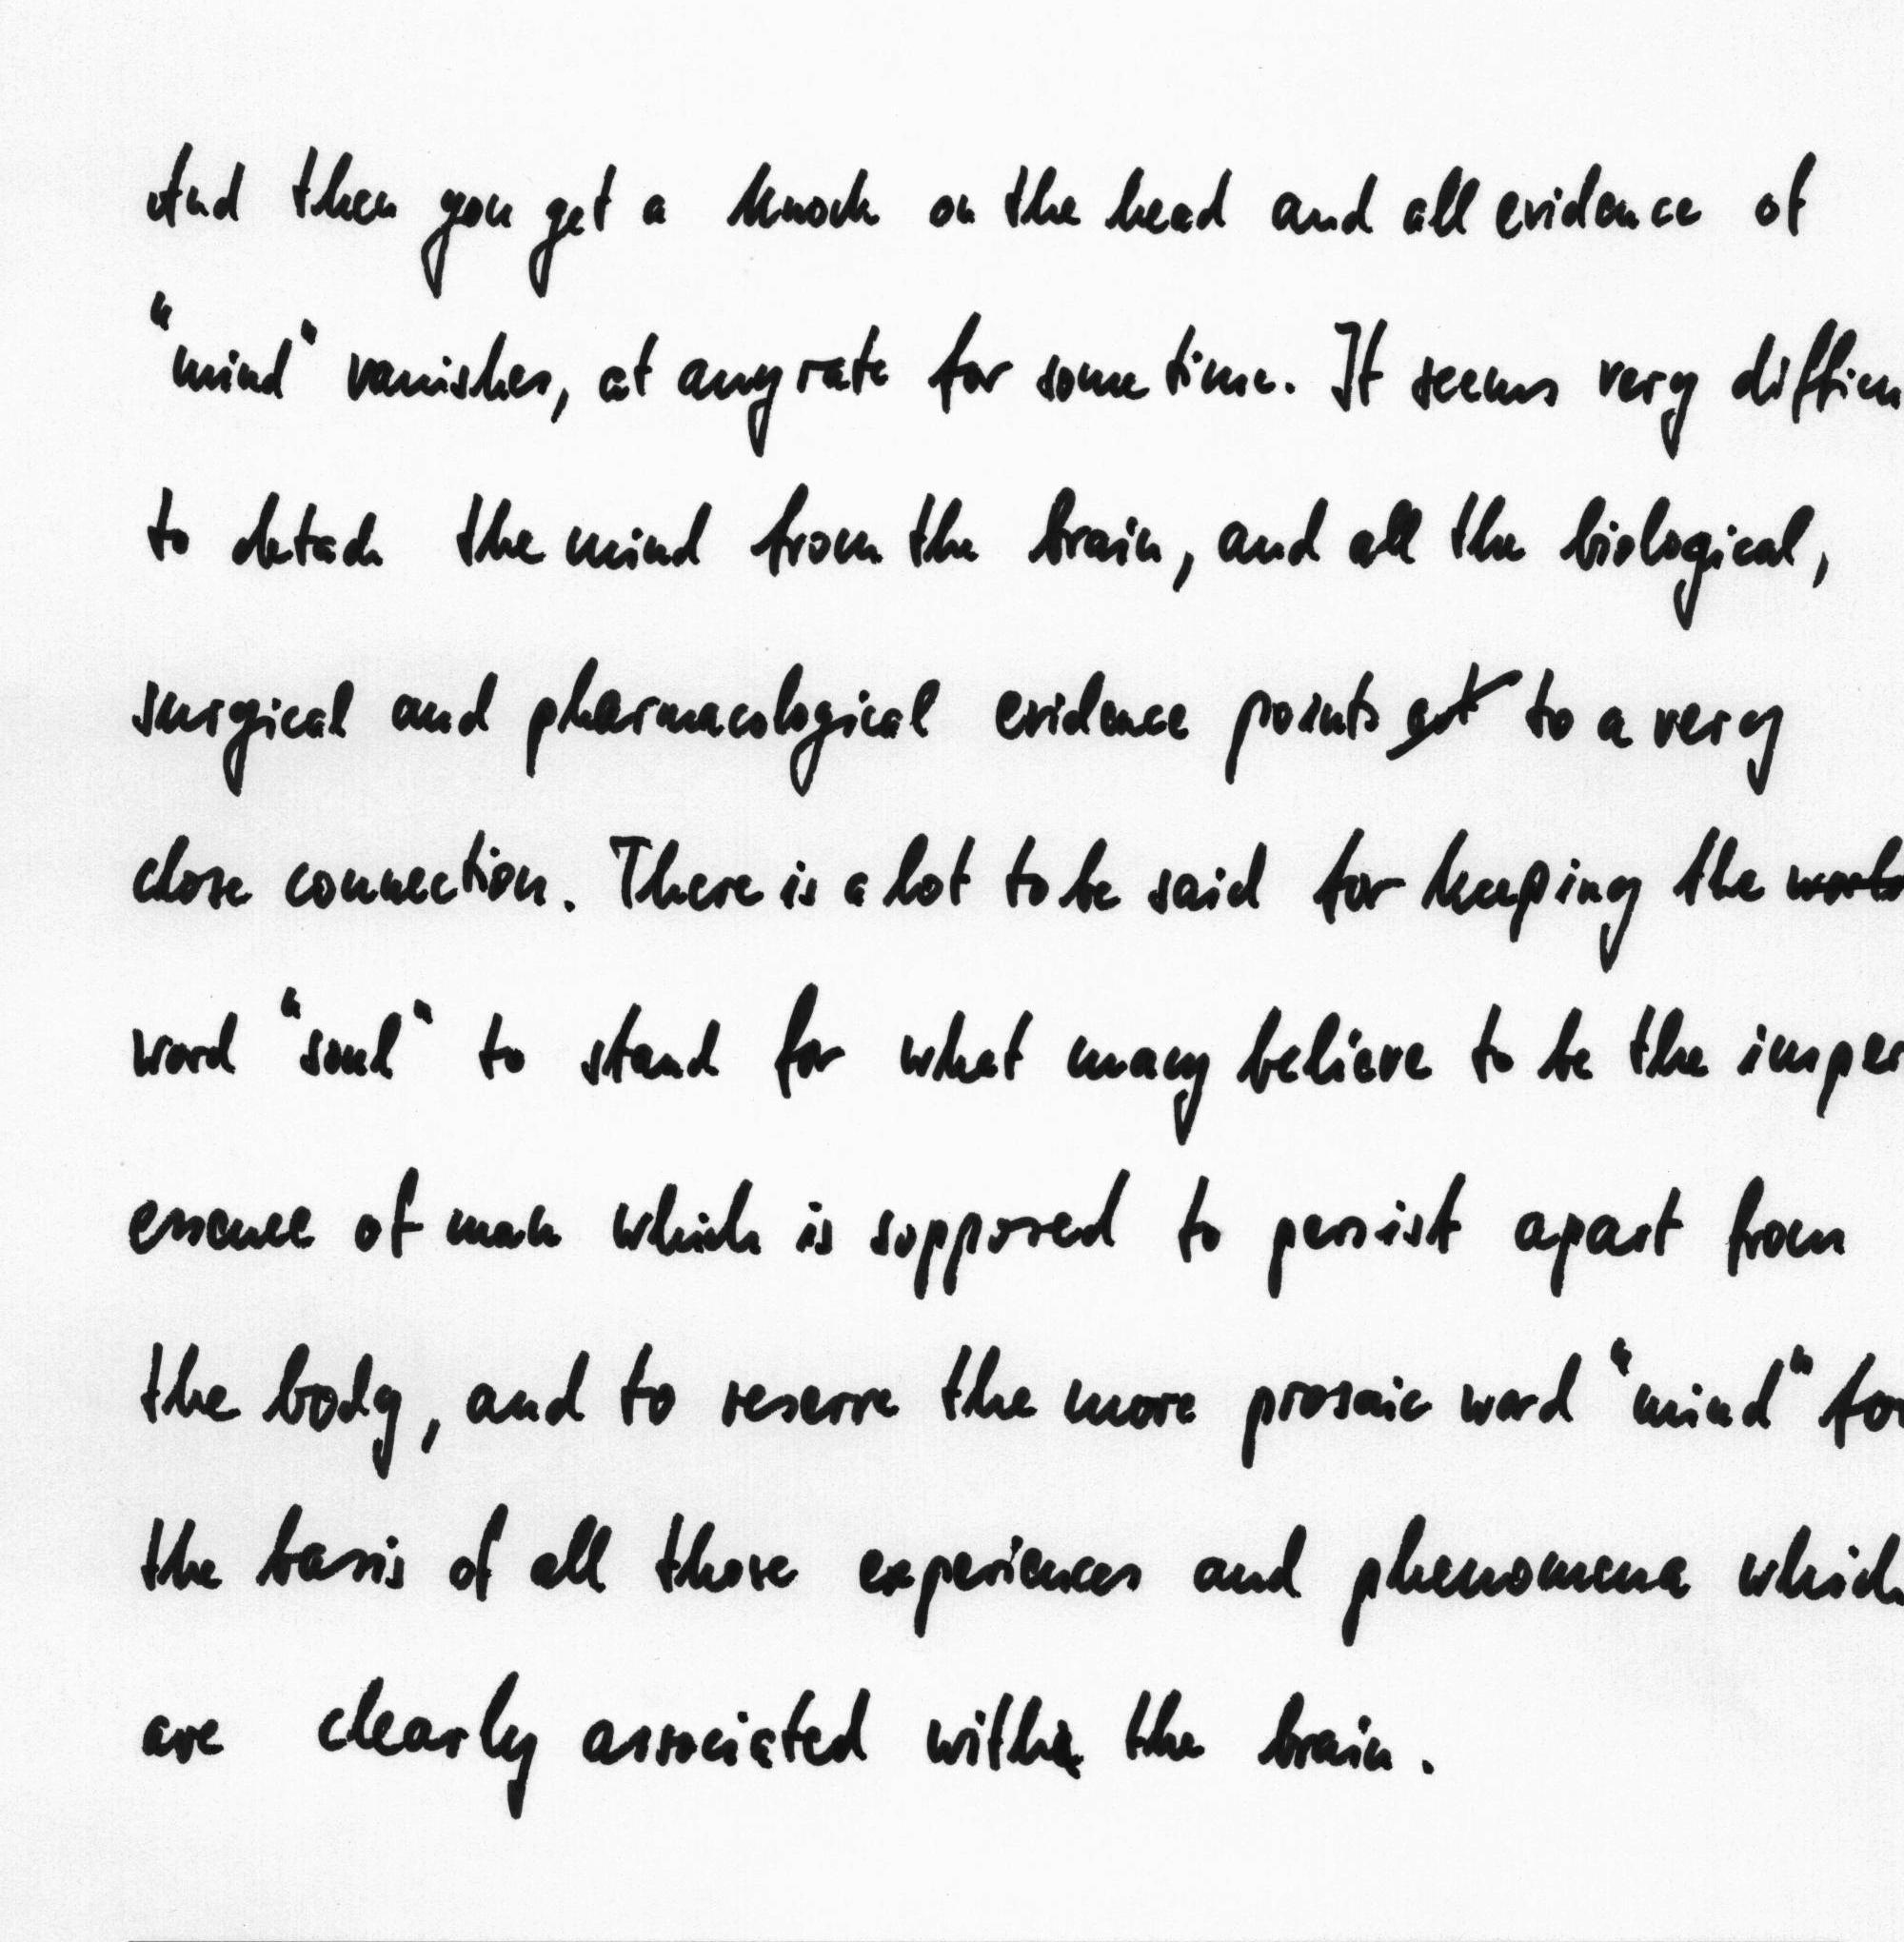 And then you get a knock on the head and all evidence of
"mind" vanishes, at any rate for some time. It seems very difficu
to detach the mind from the brain, and all the biological,
surgical and pharmacological evidence points at to a very
close connection. There is a lot to be said for keeping the
word "soul" to stand for what many believe to be the imper
essence of man which is supposed to persist apart from
the body, and to reserve the more prosaic word "mind" for
the basis of all those experiences and phenomena which
are clearly associated with the brain.